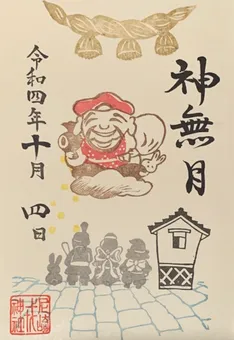 神無月
令和四年十月四日
尼崎
戎
神社